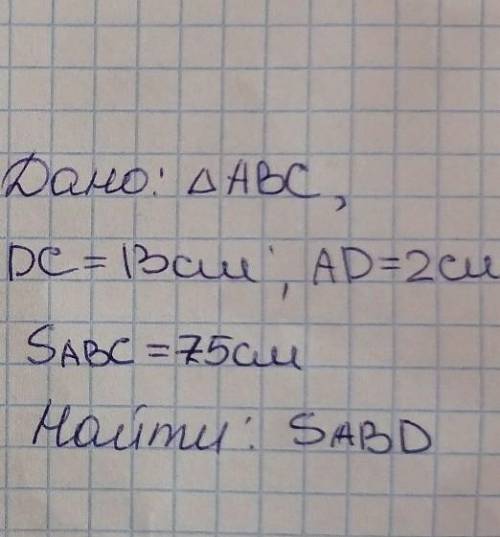 Дано: △ABC,
DC = 13см; AD = 2см
SABC = 75см
Найти: SABD